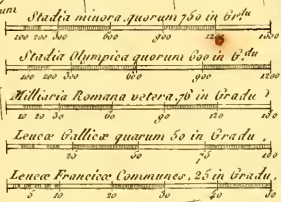 Stadia minora quorum 750 in Grdu
100 200 300 600 900 1200
Stadia Olympica quorum 600 in G.du
100 200 300 600 900 1200
Milliaria Romana vetera, 76 in Gradu
10 20 30 60 90 120
Leucæ Gallicæ quarum 50 in Gradu.
25 50 75 100
Leucæ Francicæ Communes, 25 in Gradu.
5 10 20 30 40 50